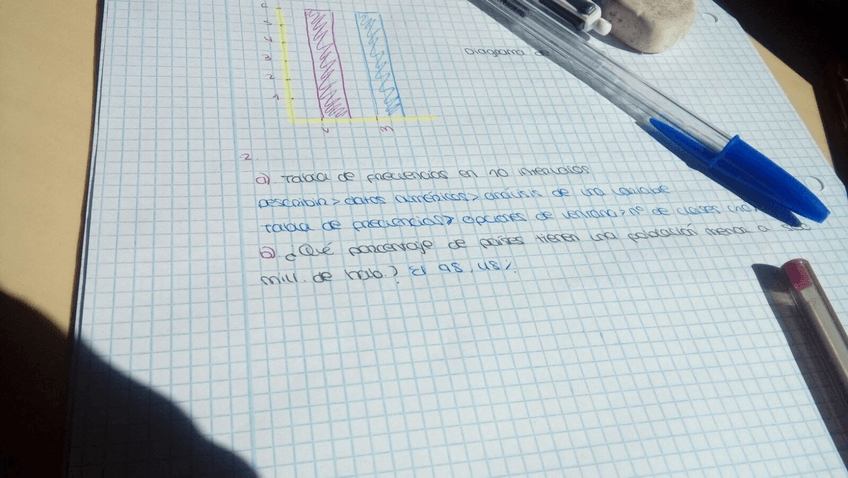 6
5
4
3
2
1
V M
Diagrama de
2.
a) Tabla de frecuencias en 10 intervalos
Describir > datos numéricos > análisis de una variable
Tabla de frecuencias > opciones de ventana > nº de clases (10)
b) ¿Qué porcentaje de países tienen una población menor a
mill. de hab.? el 95,45%